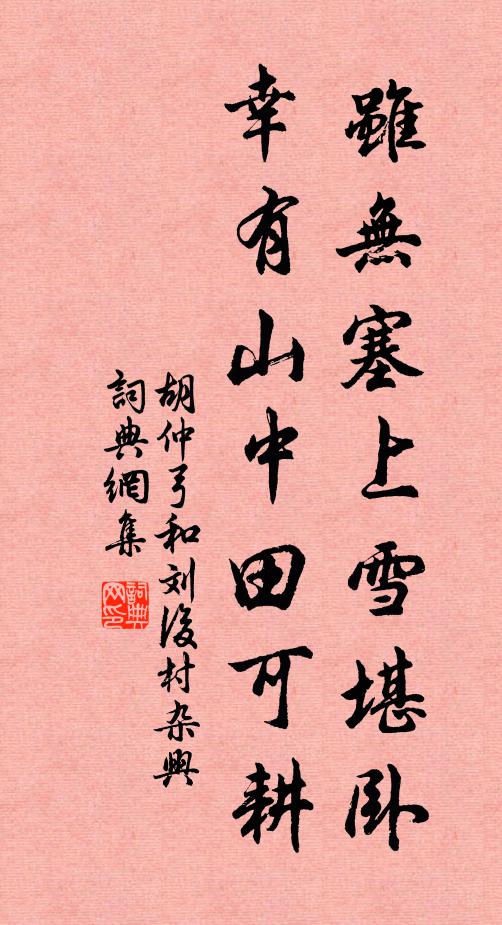 雖無塞上雪堪卧
幸有山中田可耕
胡仲弓和刘後村杂興
詞典網集
詞典网印